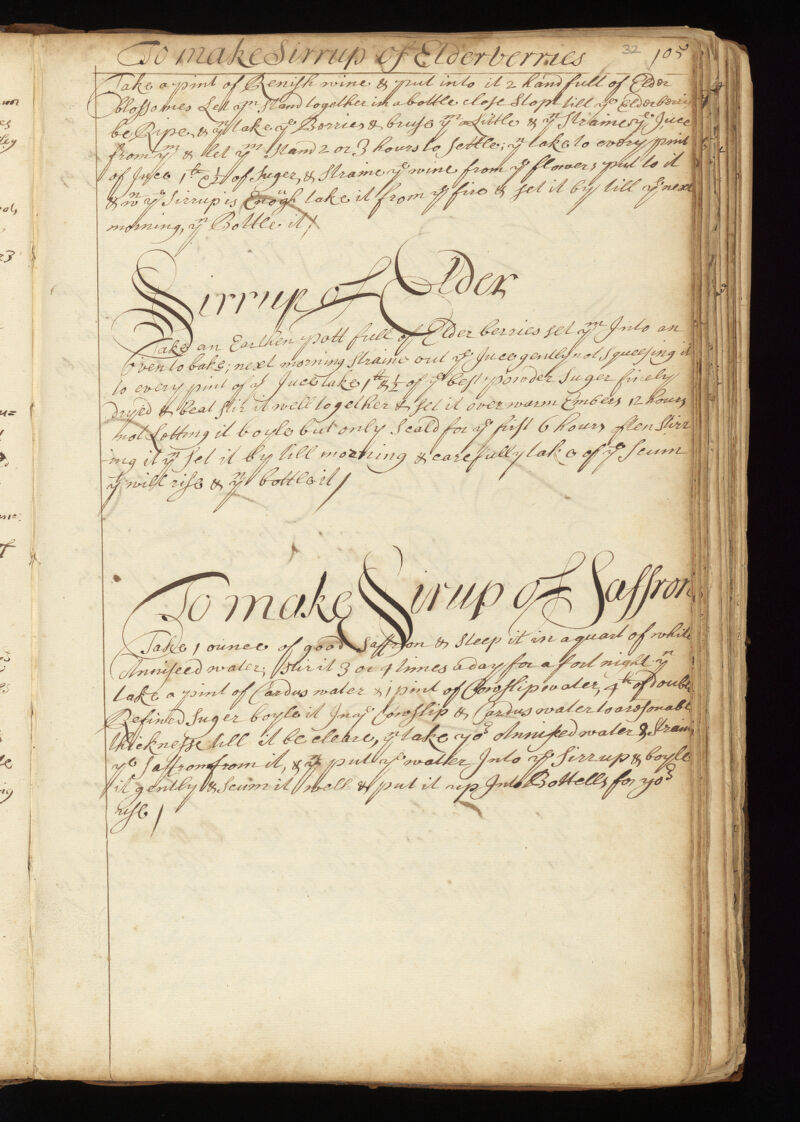 To make Sirrup of Elderberries
32 105
Take a pint of Renish wine & put into it 2 handfull of Elder
blossomes Let ym stand together in a bottle close stopt till ye Elderberries
be Ripe, & yn take ye Berries & bruse ym a Little & yn Straine ye Juce
from ym & let ym stand 2 or 3 hours to settle; yn take to every pint
of Juce 1lb & ½ of Suger, & straine ye wine from ye flowers put to it
& wn ye Sirrup is Enough take it from ye fire & set it by till ye next
morning, yn Bottle it /
Sirrup of Elder
Take an Earthen pott full of Elder berries set ym Into an
Oven to bake; next morning straine out ye Juce gently not squeesing it
to every pint of ys Juce take 1lb & ½ of ye best powder Suger finely
dryed & beat stir it well together & set it over warm Embers 12 hours
not Letting it boyle but only Scald for ye first 6 hours often stirr
ing it yn set it by till morning & carefully take of ye Scum
yt will rise & yn bottle it /
To make Sirup of Saffron
Take 1 ounce of good Saffron & steep it in a quart of white
Anniseed water; stir it 3 or 4 times a day for a fort night yn
take a pint of Cardus water & 1 pint of Cowslip water, 4lb of double
Refined Suger boyle it In ye Cowslip & Cardus water to a resonable
thicknesse till it be cleare, yn take yor Anniseed water & strain
ye Saffron from it, & yn put ye water Into ye Sirrup & boyle
it gently & scum it well & put it up Into Bottells for yor
use /